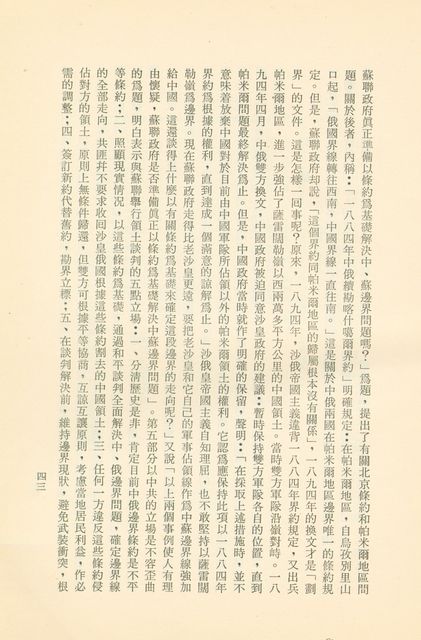 蘇聯政府眞正準備以條約爲基礎解決中、蘇邊界問題嗎？」爲題，提出了有關北京條約和帕米爾地區問
題。關於後者，內稱：「一八八四年中俄續勘喀什噶爾界約」明確規定：在帕米爾地區，自烏孜別里山
口起，「俄國界線轉往西南，中國界線一直往南。」這是關於中俄兩國在帕米爾地區邊界唯一的條約規
定。但是，蘇聯政府却說，「這個界約同帕米爾地區的歸屬根本沒有關係」，一八九四年的換文才是「劃
界」的文件。這是怎樣一回事呢？原來，一八九二年，沙俄帝國主義違背一八八四年界約規定，又出兵
帕米爾地區，進一步強佔了薩雷闊勒嶺以西兩萬多平方公里的中國領土。當時雙方軍隊沿嶺對峙。一八
九四年四月，中俄雙方換文，中國政府被迫同意沙皇政府的建議：暫時保持雙方軍隊各自的位置，直到
帕米爾問題最終解決爲止。但是，中國政府當時就作了明確的保留，聲明：「在採取上述措施時，並不
意味着放棄中國對於目前由中國軍隊所佔領以外的帕米爾領土的權利。它認爲應保持此項以一八八四年
界約爲根據的權利，直到達成一個滿意的諒解爲止。」沙俄皇帝國主義自知理屈，也不敢堅持以薩雷闊
勒嶺爲邊界。現在蘇聯政府走得比老沙皇更遠，要把老沙皇和它自己的軍事佔領線作爲中蘇邊界線強加
給中國。這還談得上什麼以有關條約爲基礎來確定這段邊界的走向呢？」又說「以上兩個事例使人有理
由懷疑，蘇聯政府是否準備眞正以條約爲基礎解決中蘇邊界問題」。第五部分以中共的立場是不容歪曲
的爲題，明白表示與蘇聯舉行領土談判的五點立場：一、分淸歷史是非，肯定目前中俄邊界條約是不平
等條約；二、照顧現實情況，以這些條約爲基礎，通過和平談判全面解決中、俄邊界問題，確定邊界線
的全部走向，共匪幷不要求收回沙皇俄國根據這些條約割去的中國領土；三、任何一方違反這些條約侵
佔對方的領土，原則上無條件歸還，但雙方可根據平等協商，互諒互讓原則，考慮當地居民利益，作必
需的調整；四、簽訂新約代替舊約，勘界立標；五、在談判解決前，維持邊界現狀，避免武裝衝突，根
四三